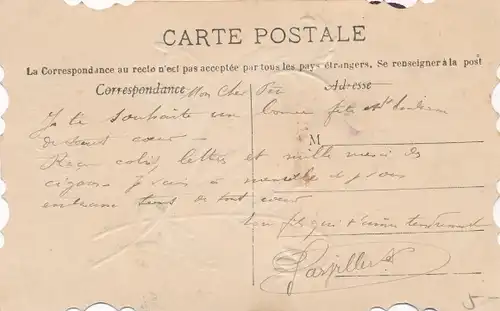 CARTE POSTALE
La Correspondance au recto n'est pas acceptée par tous les pays étrangers. Se renseigner à la post
Correspondance
Adresse
Mon Cher
Je te souhaite un bonne fête
de tout cœur
M
Reçu colis, lettres et mille merci des
cigares Je vais à merveille et je vous
embrasse tous de tout cœur
ton fils qui t'aime tendrement
5-